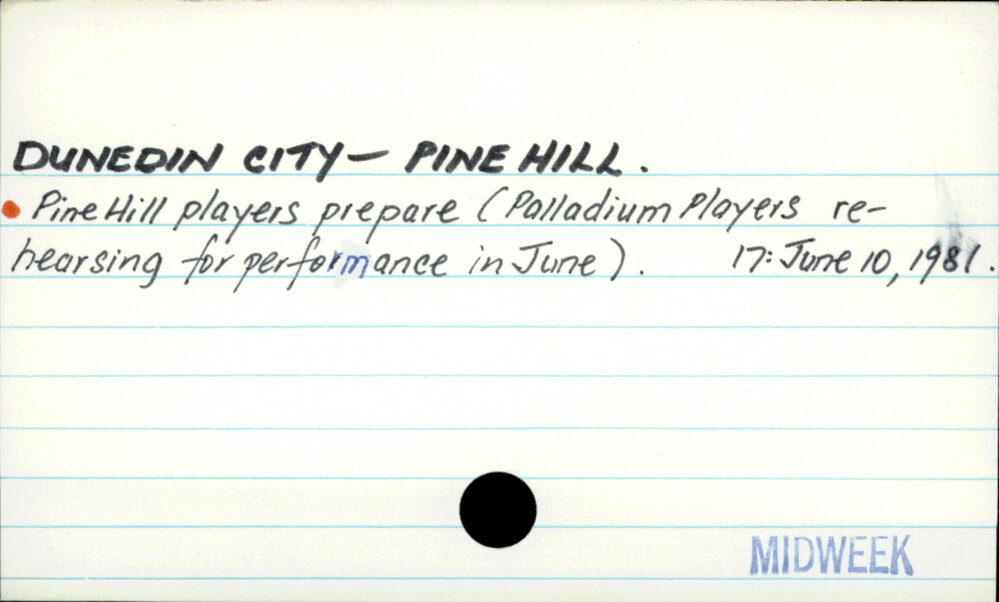 DUNEDIN CITY— PINE HILL.
Pine Hill players prepare (Palladium Players re-
hearsing for performance in June). 17: June 10, 1981.
MIDWEEK